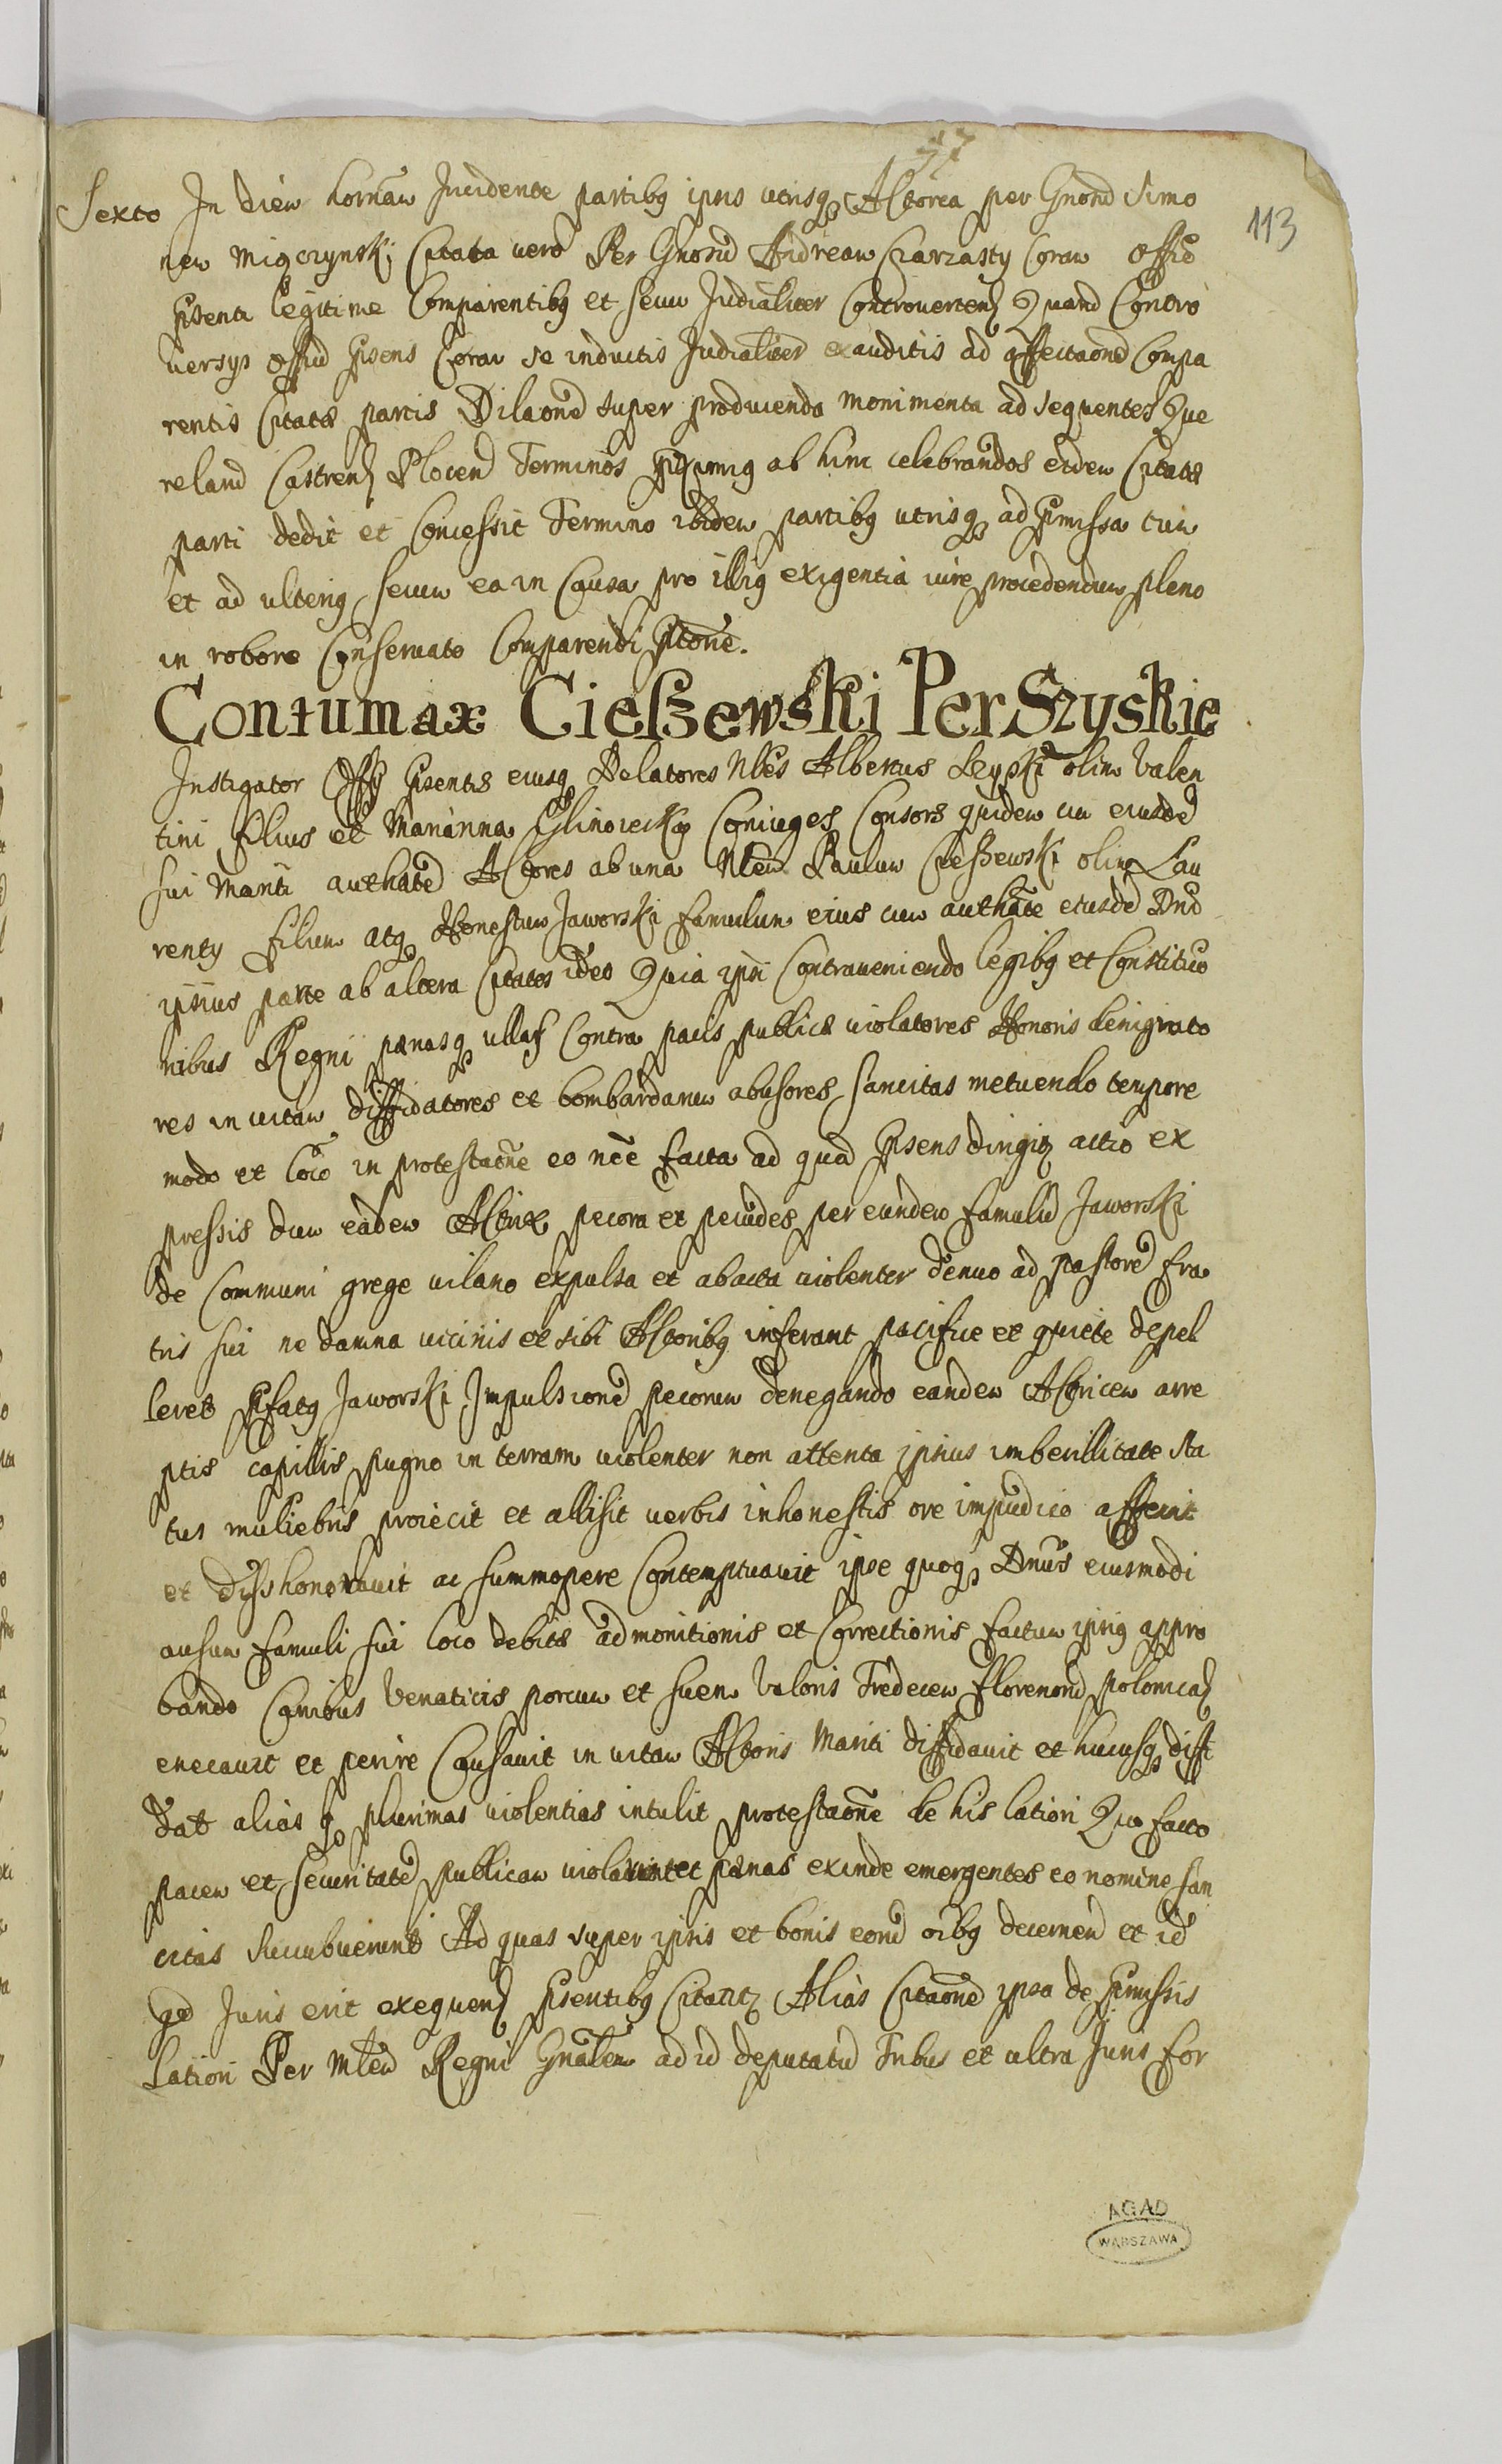 113
Sexto In diem hornam Incidente partibq ipsis utrisq Actorea per Gnosd Simo
nem Miączynski Citata vero Per Gnosd Andream Czarzasty Coram Offio
Psenti legitime Comparentibq et secum Judialiter Controverten Quard Contro
versys Offiu Psens Coram se inductis Judialiter exauditis ad affectaone Compa
rentis Citatæ partis Dilaone super producenda monimenta ad sequentes Que
relard Castren Plocen Terminos proximiq ab hinc celebrandos eidem Citatæ
parti dedit et Concessit Termino ibidem partibq utrisq ad Pmissa tum
et ad ulteriq secum ea in Causa pro illiq exigentia iure procedendum pleno
in robore Conservato Comparendi Pftone.
Contumax Cieszewski Per Szyskie
Instigator Offy Psentis eiusq Delatores Nbles Albertus Leyski olim Valen
tini filius et Marianna Glinoiecka Coniuges Consors quidem cu eiusde
sui Mariti authate Actores ab una Nlem Paulum Cieszewski olim Lau
renty filium atq Honestum Jaworski famulum eius cum authate eiusde Dni
ipsius parte ab altera Citatos ideo Quia ipsi Contraveniendo legibq et Constituo
nibus Regni pænasq ullas Contra pacis publicæ violatores Honoris denigrato
res in vitam diffidatores et bombardarum abusores sancitas metuendo tempore
modo et loco in protestatne eo nœ facta ad qua Psens dirigit actio ex
pressis dum eadem Actrix pecora et pecudes per eundem famulu Jaworski
de Communi grege vilano expulsa et abacta violenter denuo ad pastore fra
tris sui ne damna vicinis et sibi Actoribq inferant pacifice et quiete depel
leret Pfatq Jaworski Impulsione pecorum denegando eandem Actricem arre
ptis capillis pugno in terram violenter non attenta ipsius imbecillitate sta
tus muliebris proiecit et allisit verbis inhonestis ore impudico affecit
et disshonoravit ac summopere Contemptuavit ipse quoq Dnus eiusmodi
ausum famuli sui loco debitæ admonitionis et Correctionis factum ipsiq appro
bando Canibus Venaticis porcum et suem Valoris Tredecem florenord polonical
enecavit et perire Causavit in vitam Actoris Mariti diffidavit et hucusq diffi
dat alias q plurimas violentias intulit protestaone de his latiori Quo facto
pacem et securitate publicam violarunt et pænas exinde emergentes eo nomine san
citas succubuerunt Ad quas super ipsis et bonis eord oibq decernend et id
qd Juris erit exequen Psentibq Citantz Alias Citaone ipsa de Pmissis
latiori Per Mlem Regni Gnalem ad id deputatu Tribus et ultra Juris for
AGAD
WARSZAWA